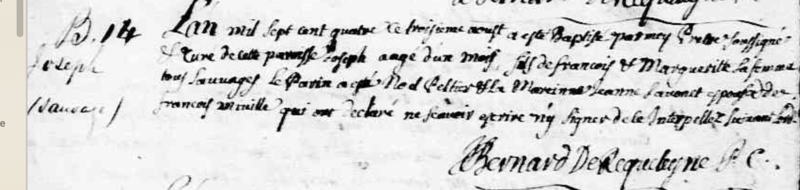 B. 14
Joseph
(sauvage)
L'an mil sept cent quatre le troisieme aoust a esté Baptisé par moy Pretre soussigné
& Curé de cette paroisse Joseph aagé d'un mois, fils de francois & Marguerite sa femme
tous sauvages Le Parin a esté Noel Peltier & La Mareinne Jeanne savonet epouse de
francois miville qui ont declaré ne scavoir escrire ny signer de ce Interpellez suivant
Bernard DeRequeleyne P. C.